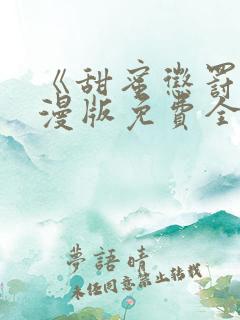 《甜蜜懲罰
漫版免費全
夢語晴
未经同意禁止转载